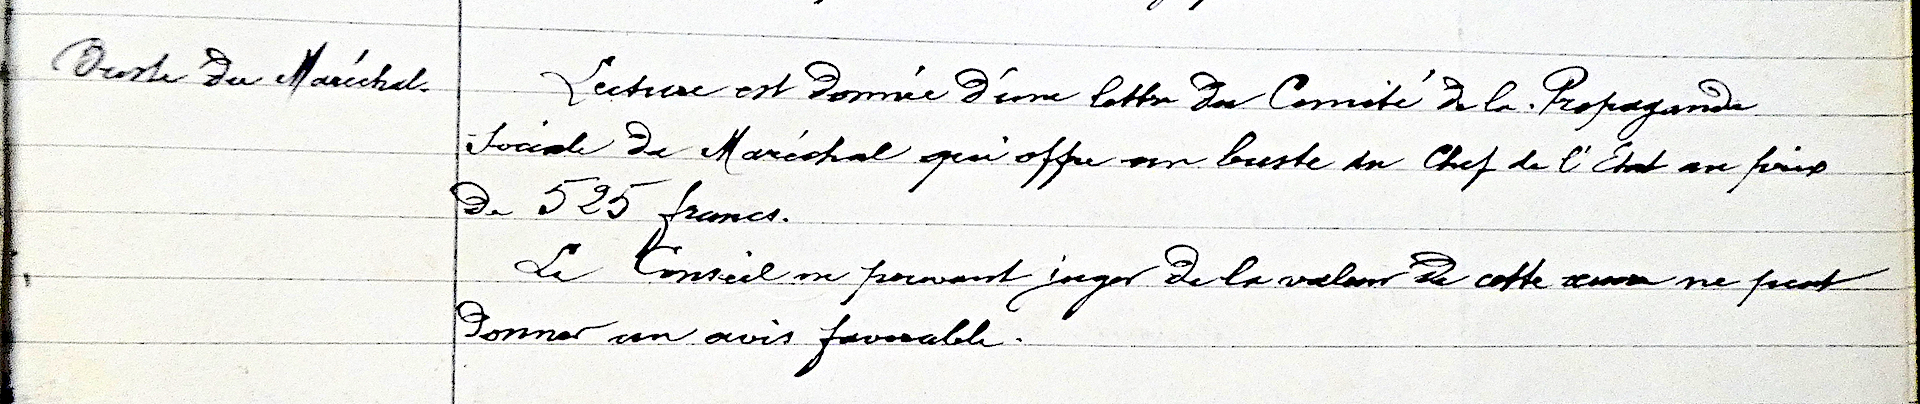 Buste du Maréchal.
Lecture est donnée d'une lettre du Comité de la Propagande
Sociale du Maréchal qui offre un buste du Chef de l'Etat au prix
de 525 francs.
Le Conseil ne pouvant juger de la valeur de cette œuvre ne peut
donner un avis favorable.